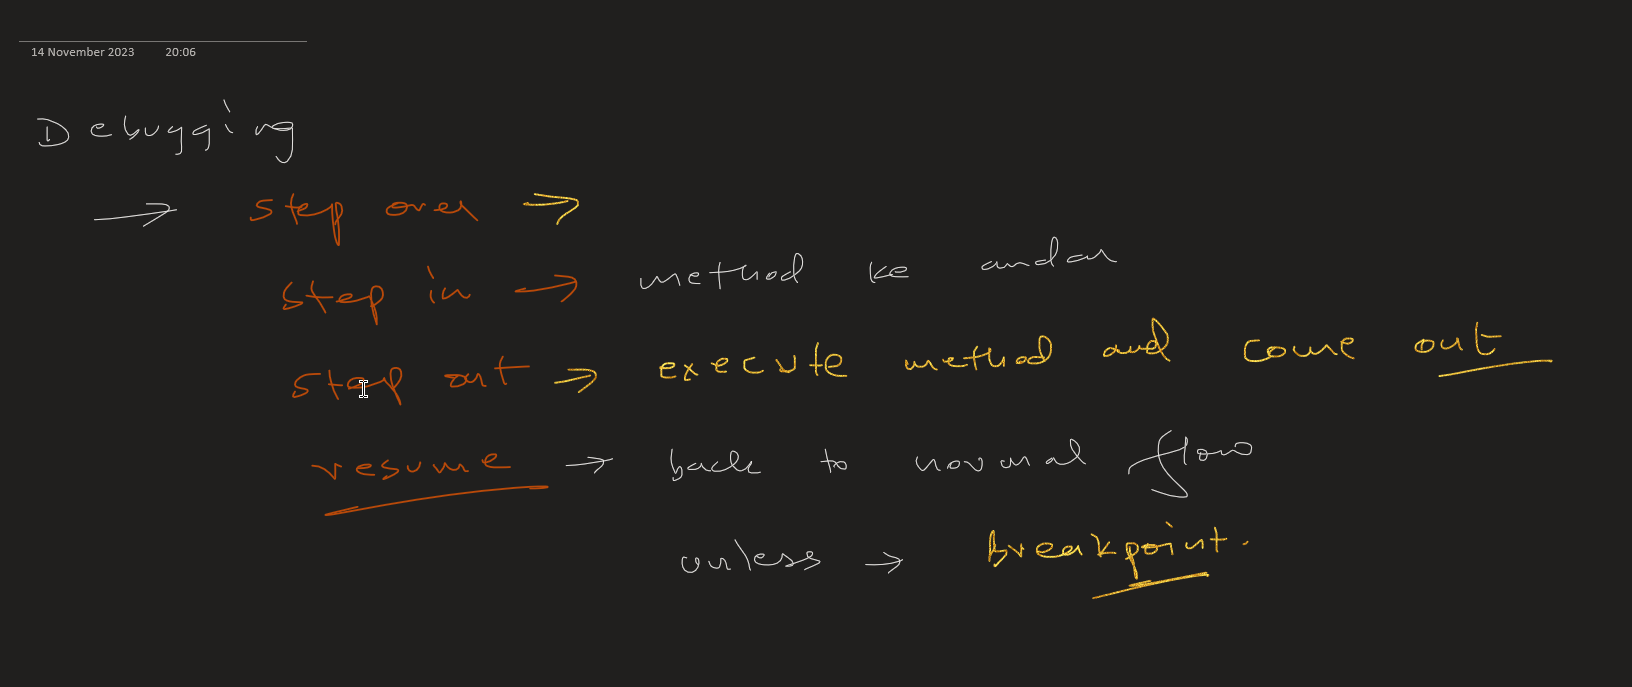 14 November 2023 20:06
Debugging
→ step over →
step in → method ke andar
step out → execute method and come out
resume → back to normal flow
unless → breakpoint.